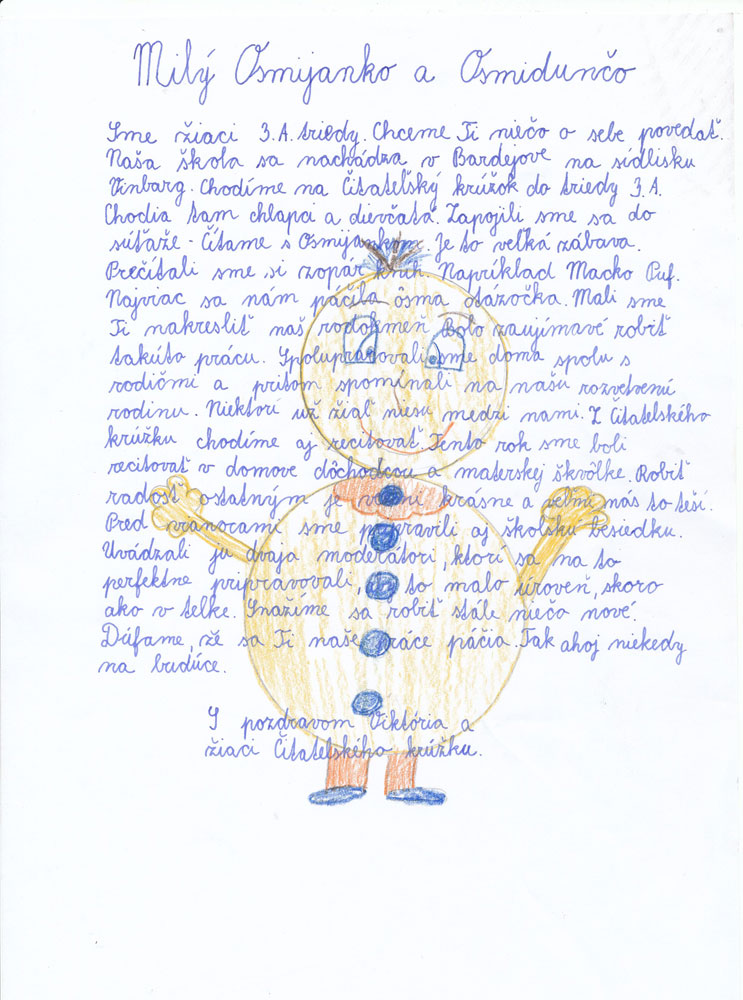 Milý Osmijanko a Osmidunčo
Sme žiaci 3.A. triedy. Chceme Ti niečo o sebe povedať.
Naša škola sa nachádza v Bardejove na sídlisku
Vinbarg. Chodíme na Čitateľský krúžok do triedy 3.A.
Chodia tam chlapci a dievčatá. Zapojili sme sa do
súťaže - Čítame s Osmijankom. Je to veľká zábava.
Prečítali sme si zopar kníh. Napríklad Macko Puf.
Najviac sa nám páčila ôsma otázočka. Mali sme
Ti nakresliť náš rodokmeň. Bolo zaujímavé robiť
takúto prácu. Spolupracovali sme doma spolu s
rodičmi a pritom spomínali na našu rozvetvenú
rodinu. Niektorí už žiaľ niesu medzi nami. Z Čitatelského
krúžku chodíme aj recitovať. Tento rok sme boli
recitovať v domove dôchodcou a materskej škvôlke. Robiť
radosť ostatným je veľmi krásne a velmi nás to teší.
Pred vianocami sme pripravili aj školskú besiedku.
Uvádzali ju dvaja moderátori, ktorí sa na to
perfektne pripravovali, to malo úroveň, skoro
ako v telke. Snažíme sa robiť stále niečo nové.
Dúfame, že sa Ti naše práce páčia. Tak ahoj niekedy
na budúce.
S pozdravom Viktória a
žiaci Čitatelského krúžku.